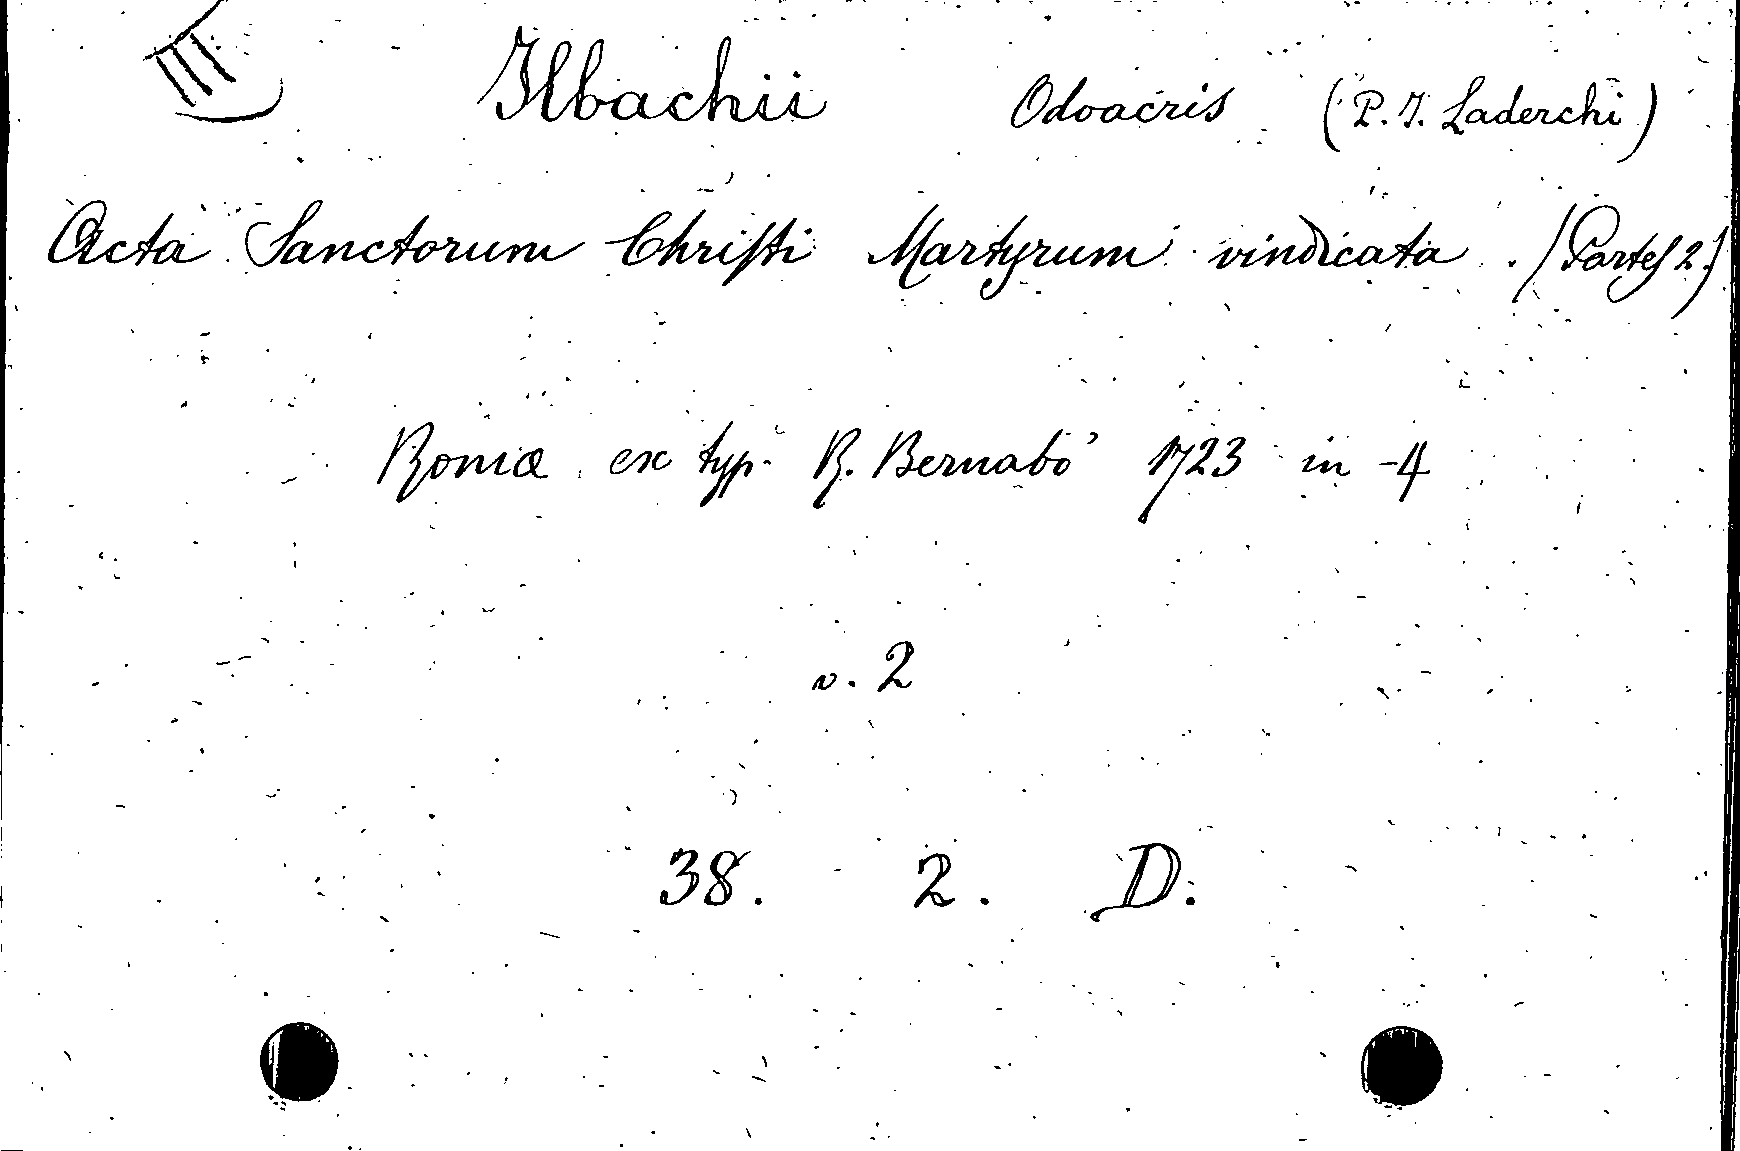 III Ilbachii Odoacris (P. I. Laderchi)
Acta Sanctorum Christi Martyrum vindicata. (Partes 2.)
Romæ ex typ. R. Bernabò 1723 in-4
v. 2
38. 2. D.